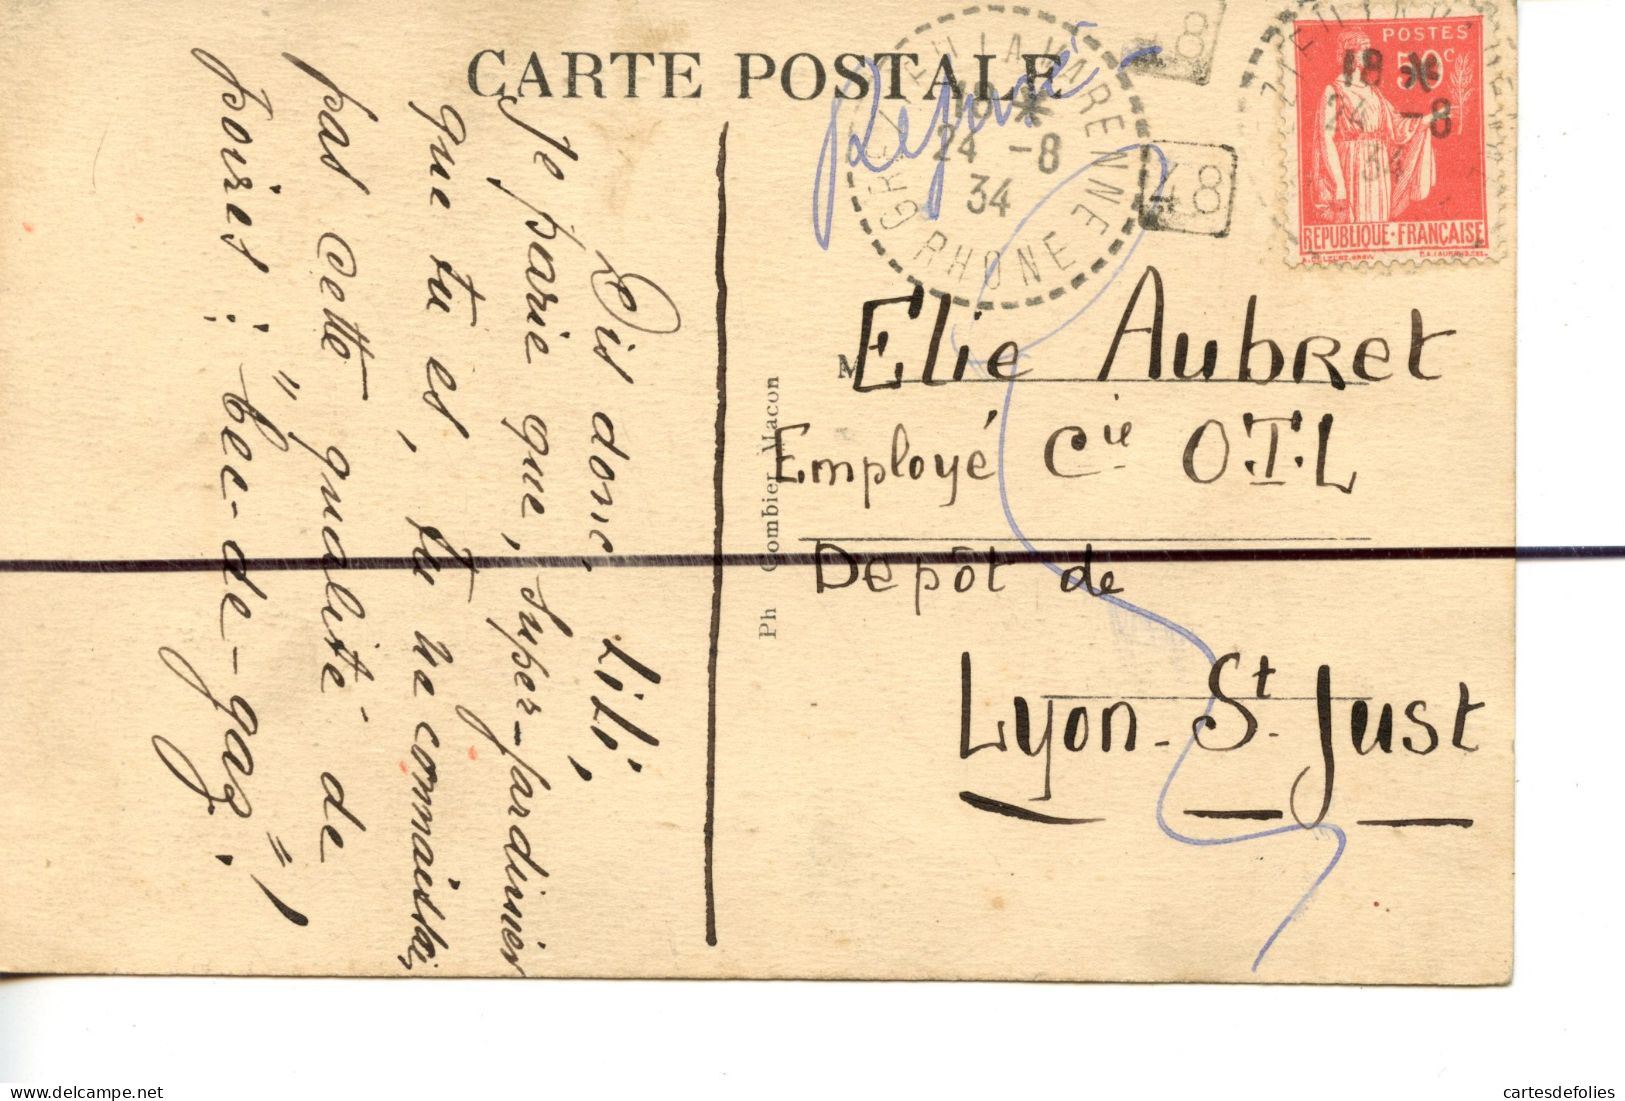 CARTE POSTALE
Refusé
GRÉZIEU LA VARENNE
18 *
24 -8
34
RHONE
48
48
18 *
24 -8
34
POSTES
50c
REPUBLIQUE·FRANÇAISE
Dis donc, LiLi,
Je parie que, super-jardinier
que tu es, tu ne connaissais
pas cette qualité de
poires : "bec-de-gaz"!
Ph Combier Macon
M
Elie Aubret
Employé Cie O.T.L
Depôt de
Lyon - St. Just
cartesdefolies